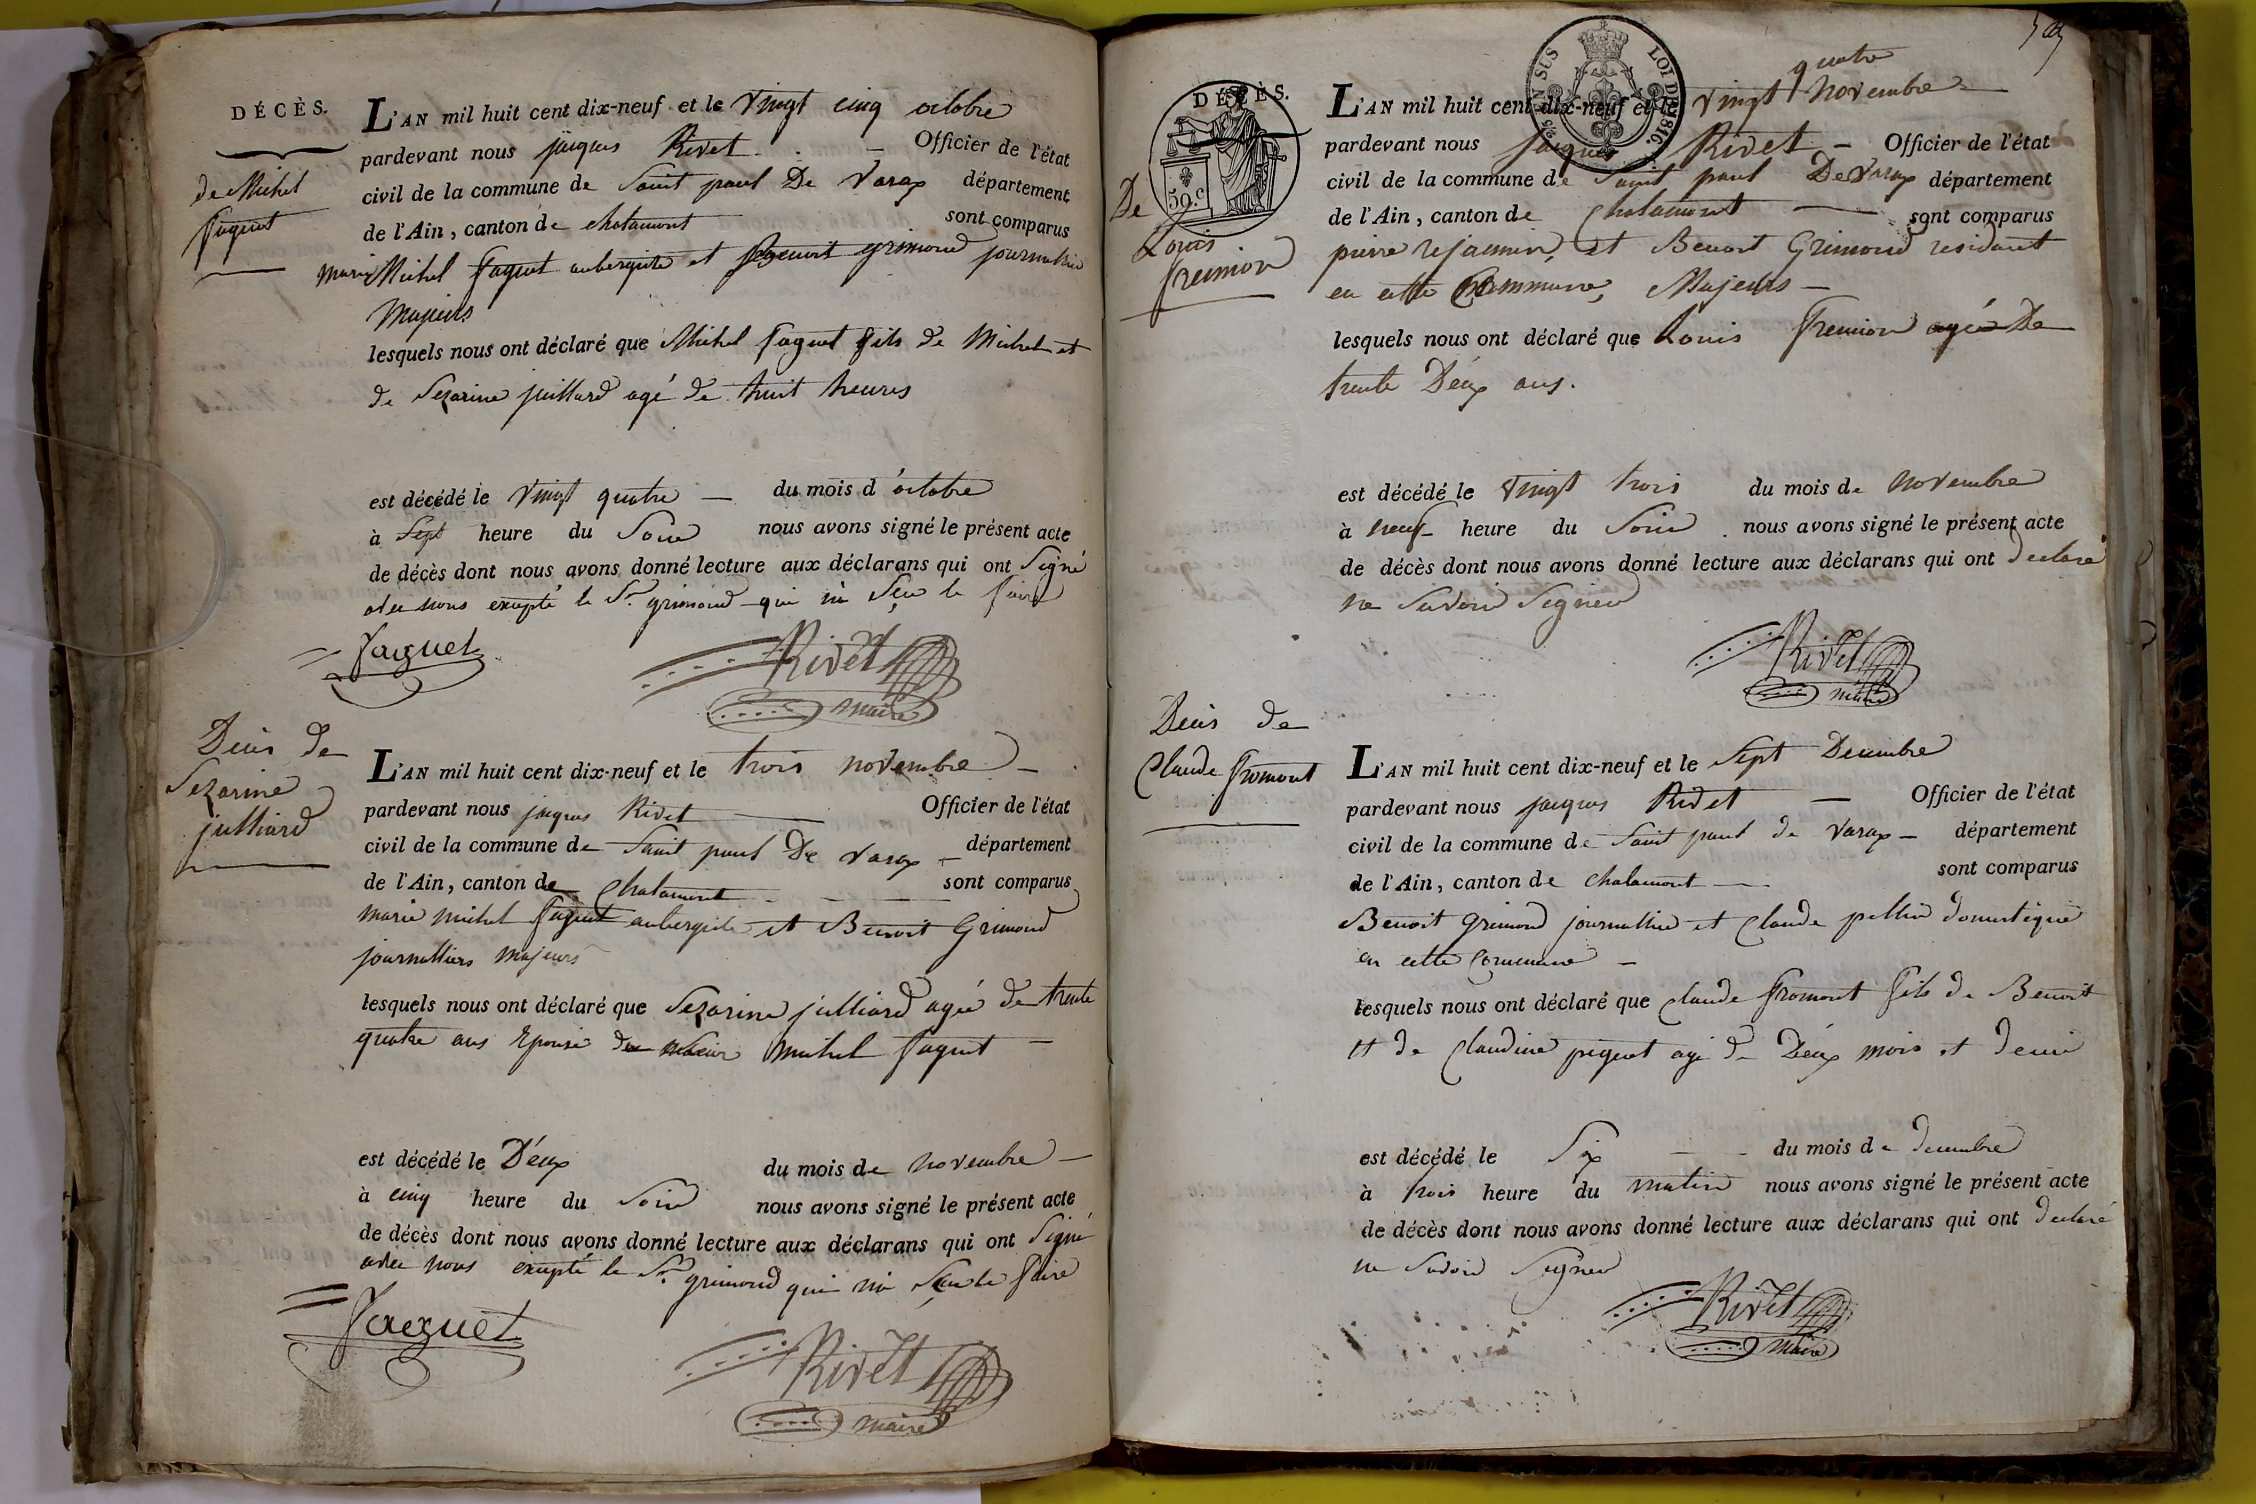 DÉCÈS.
de Michel
faguet
L'AN mil huit cent dix-neuf et le vingt cinq octobre
pardevant nous jacques Rivet Officier de l'état
civil de la commune de Saint paul De Varax département
de l'Ain, canton de chalamont sont comparus
marie Michel faguet aubergiste et Benoit grimond journalier
Majeurs
lesquels nous ont déclaré que Michel faguet fils de Michel et
de Sezarine juillard agé de huit heures
est décédé le vingt quatre du mois d'octobre
à Sept heure du Soir nous avons signé le présent acte
de décès dont nous avons donné lecture aux déclarans qui ont Signé
avec nous excepté le Sr. grimond qui na Sçu le faire
faguet
Rivet
maire
Deces de
Sezarine
julliard
L'AN mil huit cent dix-neuf et le trois novembre
pardevant nous jacques Rivet Officier de l'état
civil de la commune de Saint paul De Varax département
de l'Ain, canton de Chalamont sont comparus
marie michel faguet aubergiste et Benoit Grimond
journalliers majeurs
lesquels nous ont déclaré que Sezarine julliard agée de trente
quatre ans Epouse de michel faguet
est décédé le Déux du mois de novembre
à cinq heure du Soir nous avons signé le présent acte
de décès dont nous avons donné lecture aux déclarans qui ont Signé
avec nous excepté le Sr. grimond qui na Sçu le faire
faguet
Rivet
maire
DÉCÈS.
50.c
EN SUS
LOI DE 1816.
De
Louis
fremion
L'AN mil huit cent dix-neuf et le vingt quatre novembre
pardevant nous Jacques Rivet Officier de l'état
civil de la commune de Saint paul De Varax département
de l'Ain, canton de Chalamont sont comparus
pierre rejaunier, et Benoit Grimond residant
en cette Commune, Majeurs
lesquels nous ont déclaré que Louis fremion agée De
trente Déux ans.
est décédé le vingt trois du mois de novembre
à neuf heure du Soir nous avons signé le présent acte
de décès dont nous avons donné lecture aux déclarans qui ont declaré
ne Savoir Signer
Rivet
maire
Deces de
Claude fromont
L'AN mil huit cent dix-neuf et le Sept Decembre
pardevant nous jacques Rivet Officier de l'état
civil de la commune de Saint paul de Varax département
de l'Ain, canton de chalamont sont comparus
Benoit grimond journallier et Claude pellin domestique
en cette Commune
lesquels nous ont déclaré que claude fromont fils de Benoit
et de Claudine piguet agé de Déux mois et demi
est décédé le Six du mois de decembre
à trois heure du matin nous avons signé le présent acte
de décès dont nous avons donné lecture aux déclarans qui ont declaré
ne Savoir Signer
Rivet
maire